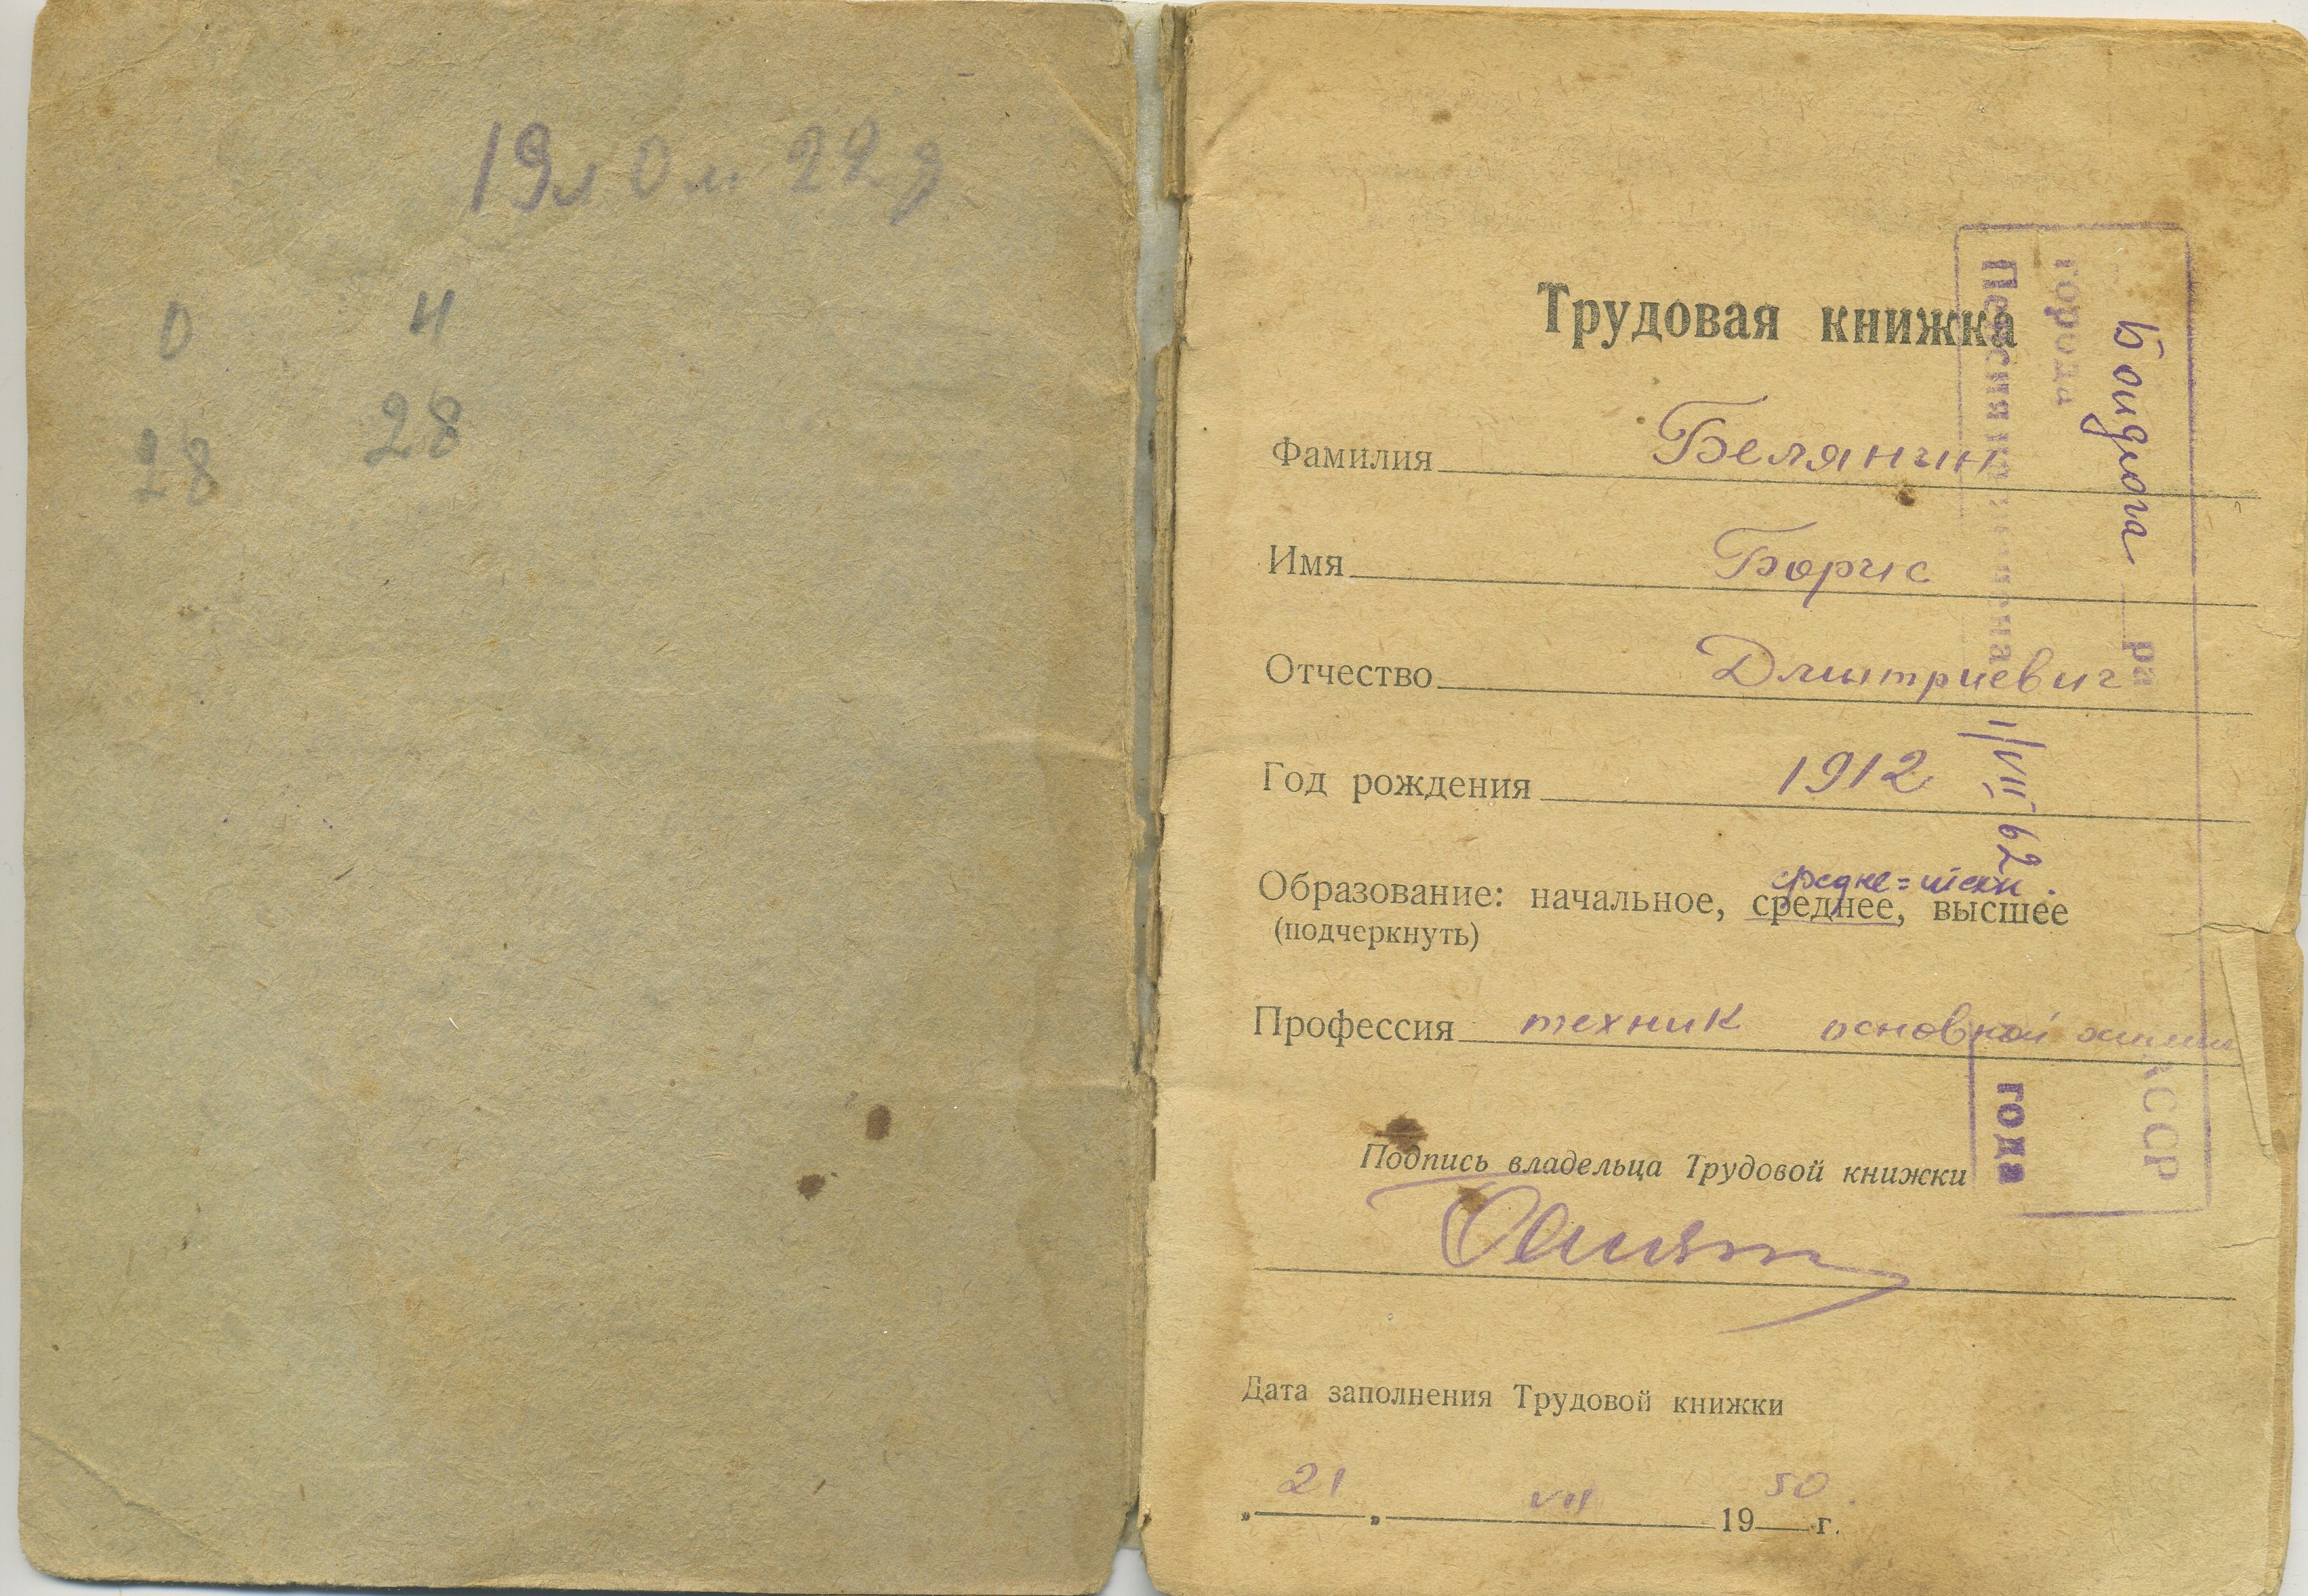 19 л 0 м 22 д
0 4
28 28
Трудовая книжка
Фамилия Белянин
Имя Борис
Отчество Дмитриевич
Год рождения 1912
средне=техн.
Образование: начальное, среднее, высшее
(подчеркнуть)
Профессия техник основной химии
Подпись владельца Трудовой книжки
Дата заполнения Трудовой книжки
„ 21 „ VII 19 50 г.
города
АССР
года